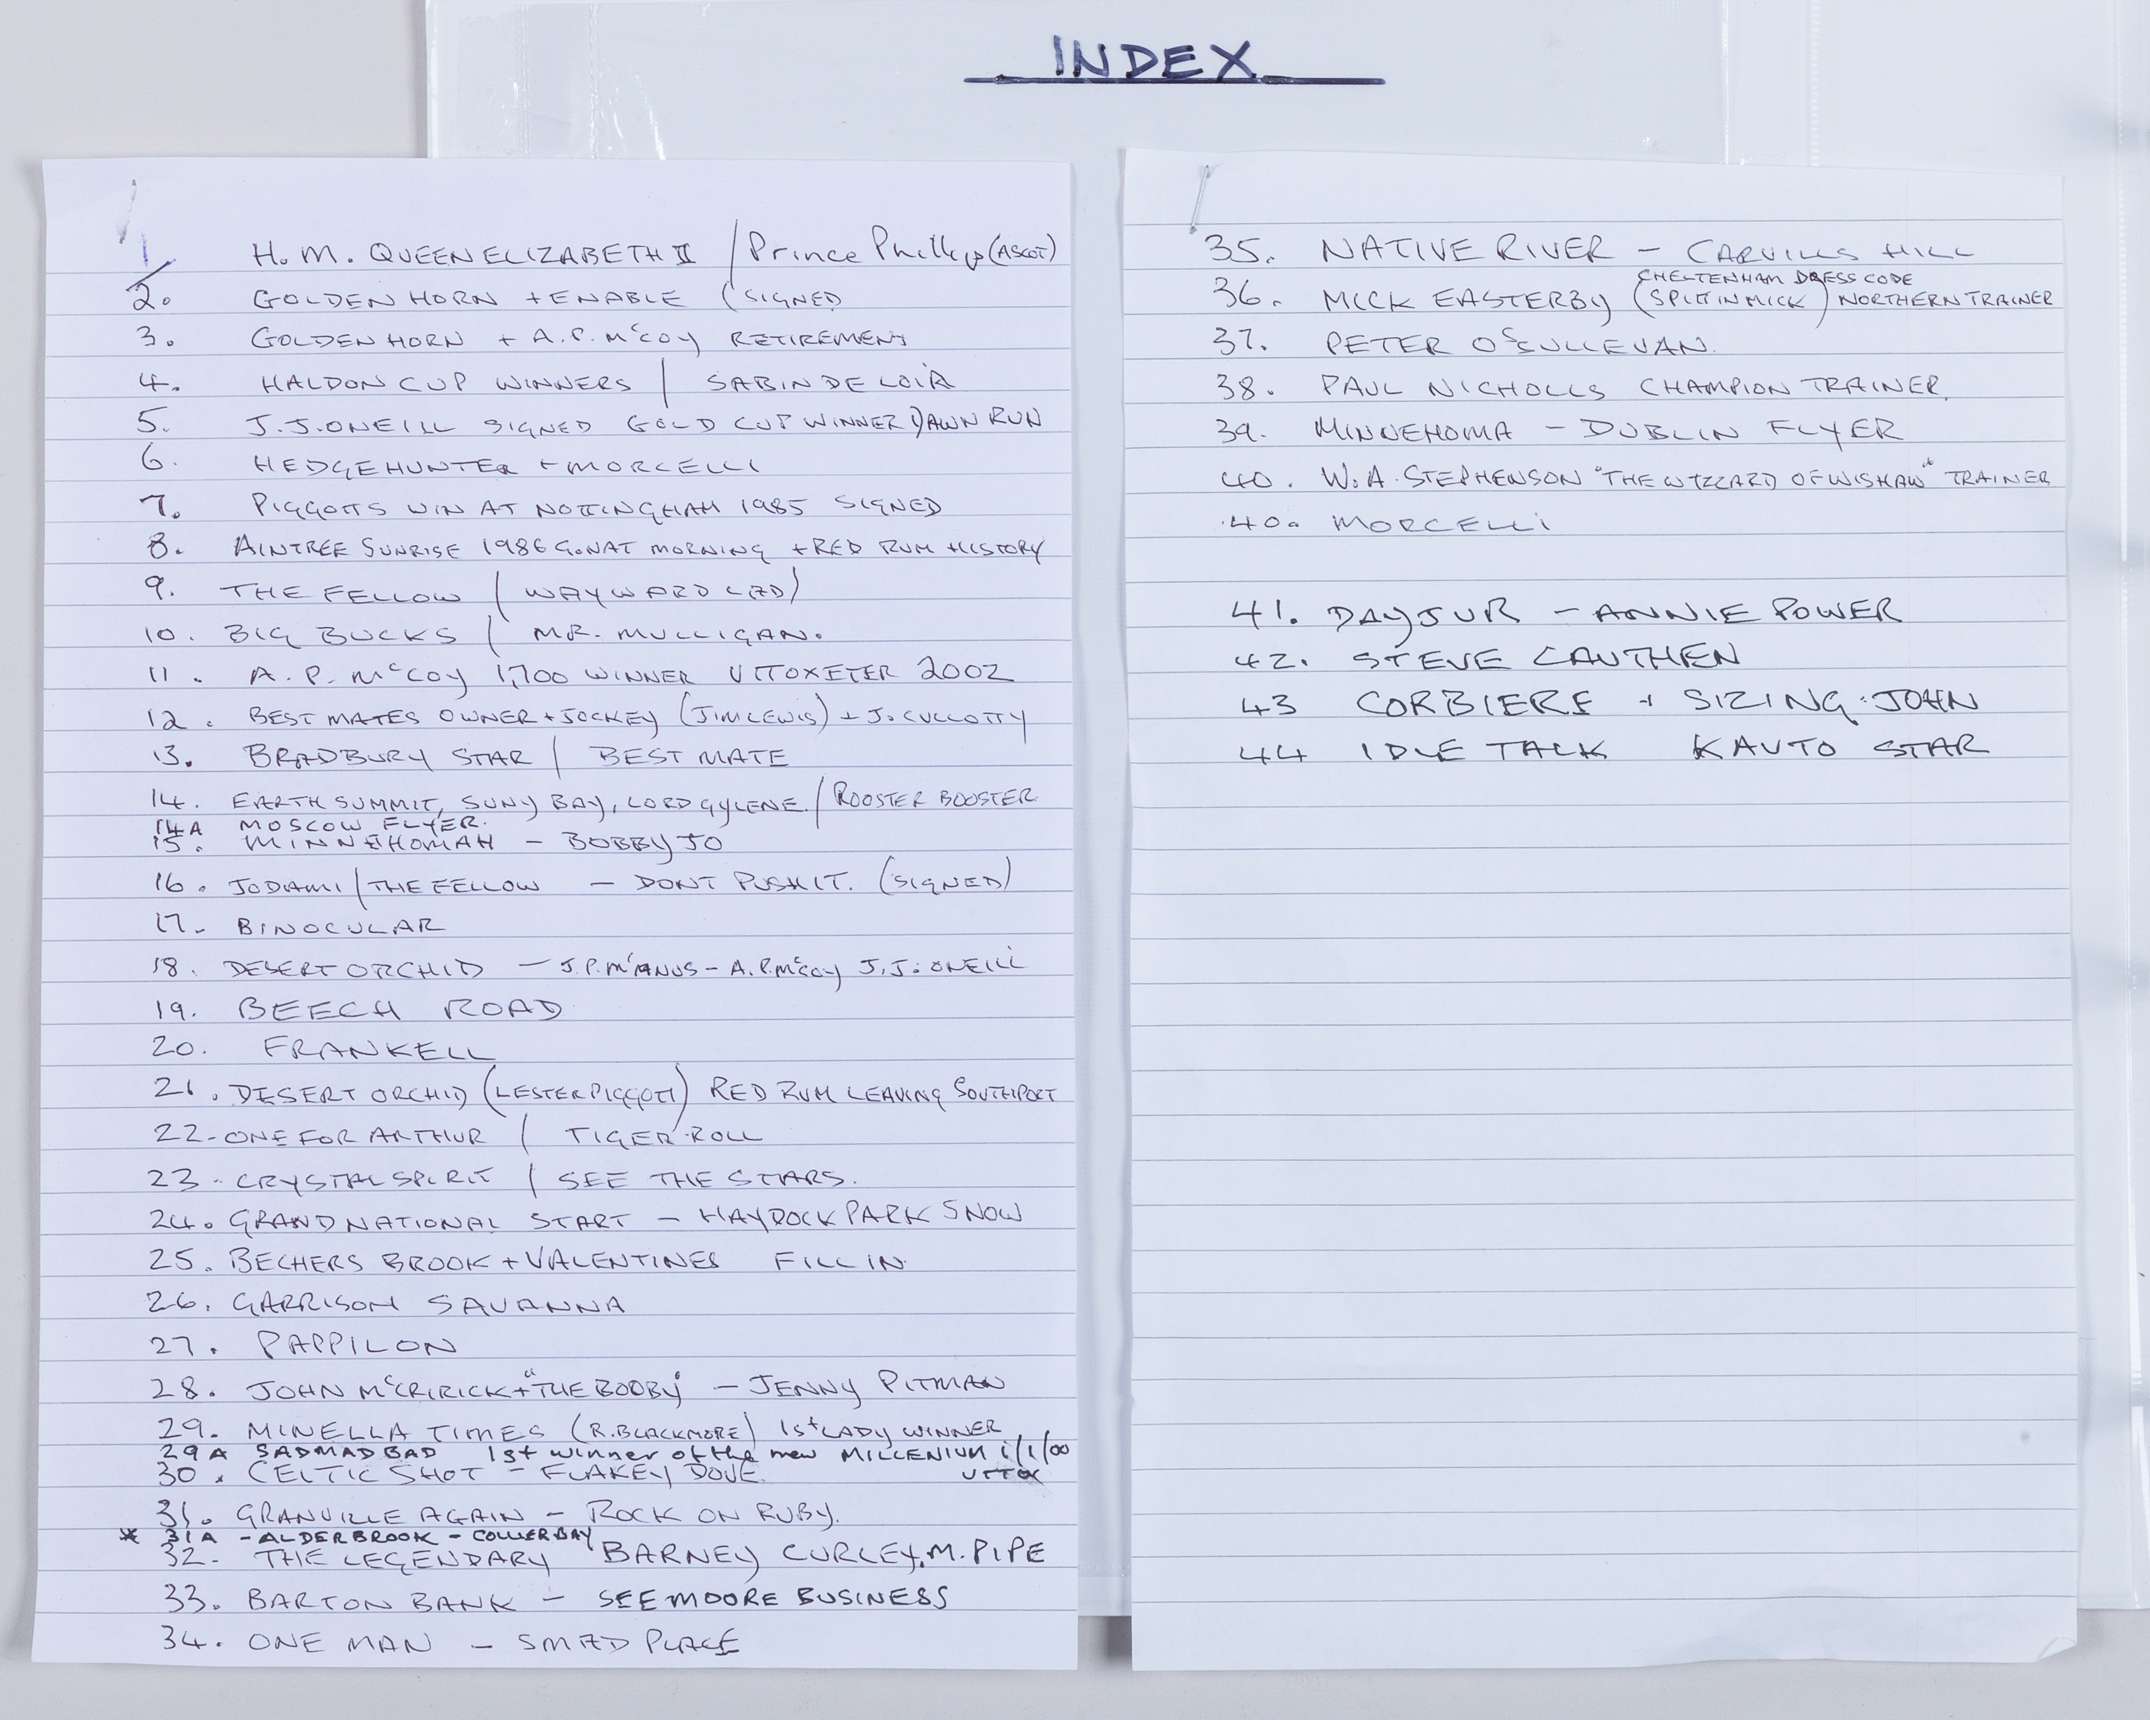 INDEX
1 H.M. QUEEN ELIZABETH II / Prince Phillip (ASCOT)
2. GOLDEN HORN + ENABLE (SIGNED
3. GOLDEN HORN + A.P. McCOY RETIREMENT
4. HALDON CUP WINNERS / SABIN DE LOIR
5. J.J. ONEILL SIGNED GOLD CUP WINNER DAWN RUN
6. HEDGEHUNTER + MORCELLI
7. PIGGOTTS WIN AT NOTTINGHAM 1985 SIGNED
8. AINTREE SUNRISE 1986 G.NAT MORNING + RED RUM HISTORY
9. THE FELLOW / WAYWARD LAD)
10. BIG BUCKS / MR. MULLIGAN.
11. A.P. McCOY 1,700 WINNER UTTOXETER 2002
12. BEST MATES OWNER + JOCKEY (JIM LEWIS) + J. CULLOTTY
13. BRADBURY STAR / BEST MATE
14. EARTH SUMMIT, SUNY BAY, LORD GYLENE. / ROOSTER BOOSTER
14A MOSCOW FLYER.
15. MINNEHOMAH - BOBBY JO
16. JODAMI / THE FELLOW - DONT PUSH IT. (SIGNED)
17. BINOCULAR
18. DESERT ORCHID - J.P. McMANUS - A.P. McCoy J.J. ONEILL
19. BEECH ROAD
20. FRANKELL
21. DESERT ORCHID (LESTER PIGGOTT) RED RUM LEAVING SOUTHPORT
22- ONE FOR ARTHUR / TIGER ROLL
23. CRYSTAL SPIRIT / SEE THE STARS.
24. GRAND NATIONAL START - HAYDOCK PARK SNOW
25. BECHERS BROOK + VALENTINES FILL IN.
26. GARRISON SAVANNA
27. PAPPILON
28. JOHN McCRIRICK + "THE BOOBY" - JENNY PITMAN
29. MINELLA TIMES (R. BLACKMORE) 1st LADY WINNER
29A SADMADBAD 1st winner of the new MILLENIUM 1/1/00
UTTOX
30. CELTIC SHOT - FLAKEY DOVE.
31. GRANVILLE AGAIN - ROCK ON RUBY.
* 31A - ALDERBROOK - COLLIER BAY
32- THE LEGENDARY BARNEY CURLEY. M. PIPE
33. BARTON BANK - SEE MOORE BUSINESS
34. ONE MAN - SMAD PLACE
35. NATIVE RIVER - CARVILLS HILL
CHELTENHAM DRESS CODE
36. MICK EASTERBY (SPITTIN MICK) NORTHERN TRAINER
37. PETER O'SULLEVAN.
38. PAUL NICHOLLS CHAMPION TRAINER.
39. MINNEHOMA - DUBLIN FLYER
40. W.A. STEPHENSON "THE WIZZARD OF WISHAW" TRAINER
40. MORCELLI
41. DAYJUR - ANNIE POWER
42. STEVE CAUTHEN
43 CORBIERE + SIZING JOHN
44 IDLE TALK KAUTO STAR